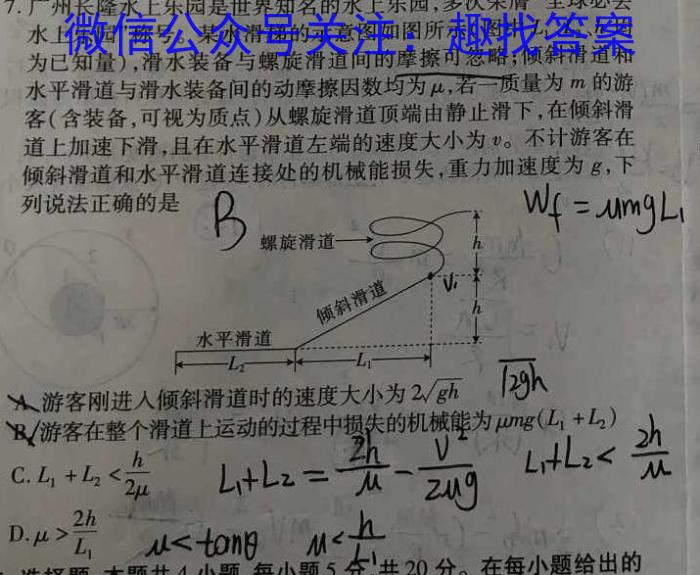 7. 广州长隆水上乐园是世界知名的水上乐园,多次荣膺“全球必去
水上乐园”称号。某水滑梯的示意图如图所示(图中
微信公众号关注:趣找答案
为已知量),滑水装备与螺旋滑道间的摩擦可忽略;倾斜滑道和
水平滑道与滑水装备间的动摩擦因数均为μ,若一质量为 m 的游
客(含装备,可视为质点)从螺旋滑道顶端由静止滑下,在倾斜滑
道上加速下滑,且在水平滑道左端的速度大小为 v。不计游客在
倾斜滑道和水平滑道连接处的机械能损失,重力加速度为 g,下
列说法正确的是
B
Wf = μmgL₁
螺旋滑道
h
V₁
倾斜滑道
h
水平滑道
L₂
L₁
A. 游客刚进入倾斜滑道时的速度大小为 2√gh
√2gh
B. 游客在整个滑道上运动的过程中损失的机械能为 μmg(L₁+L₂)
C. L₁+L₂<h/2μ
L₁+L₂ = 2h/μ - V²/2μg
L₁+L₂ < 2h/μ
D. μ>2h/L₁
μ<tanθ
μ<h/L₁
选择题:本题共4小题,每小题5分,共20分。在每小题给出的